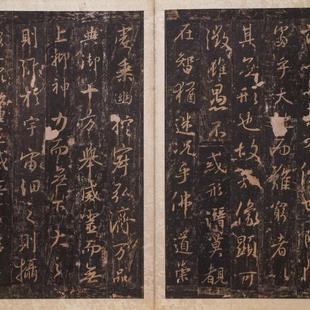 處乎天而難窮者以
其無形也故知像顯可
徵雖愚不惑形潛莫覩
在智猶迷況乎佛道崇
虛乘幽控寂弘濟万品
典御十方舉威靈而無
上抑神力而無下大之
則彌於宇宙細之則攝